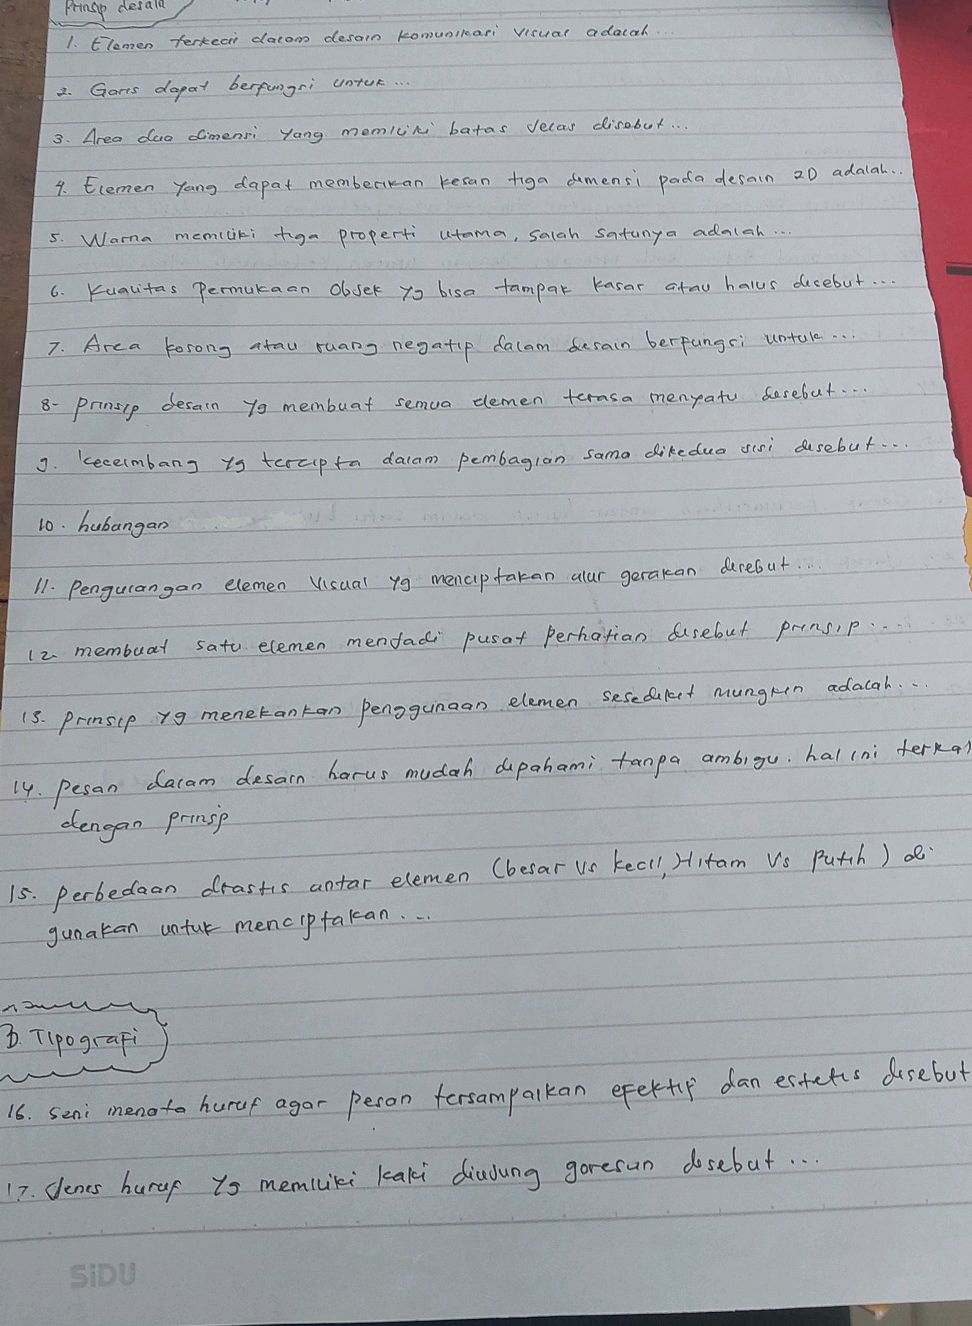 Prinsip desain
1. Elemen terkecil dalam desain komunikasi visual adalah...
2. Garis dapat berfungsi untuk...
3. Area dua dimensi yang memiliki batas Jelas disebut...
4. Elemen yang dapat memberikan kesan tiga dimensi pada desain 2D adalah..
5. Warna memiliki tiga properti utama, salah satunya adalah...
6. Kualitas Permukaan Objek yg bisa tampak kasar atau halus disebut...
7. Area kosong atau ruang negatip dalam desain berfungsi untuk...
8- Prinsip desain yg membuat semua elemen terasa menyatu disebut...
9. keceimbang yg tercipta dalam pembagian sama dikedua sisi disebut...
10. hubangan
11. Pengurangan elemen visual yg menciptakan alur gerakan disebut...
12. membuat satu elemen menjadi pusat perhatian disebut prinsip....
13. prinsip yg menekankan penggunaan elemen sesedikit mungkin adalah...
14. pesan dalam desain harus mudah dipahami tanpa ambigu. hal ini
dengan prinsp
15. perbedaan drastis antar elemen (besar vs kecil, Hitam vs Putih) di
gunakan untuk menciptakan...
B. Tipografi
16. seni menata huruf agar pesan tersampaikan efektif dan estetis disebut
17. Jenis huruf yg memiliki kaki diujung goresan disebut...
SiDU